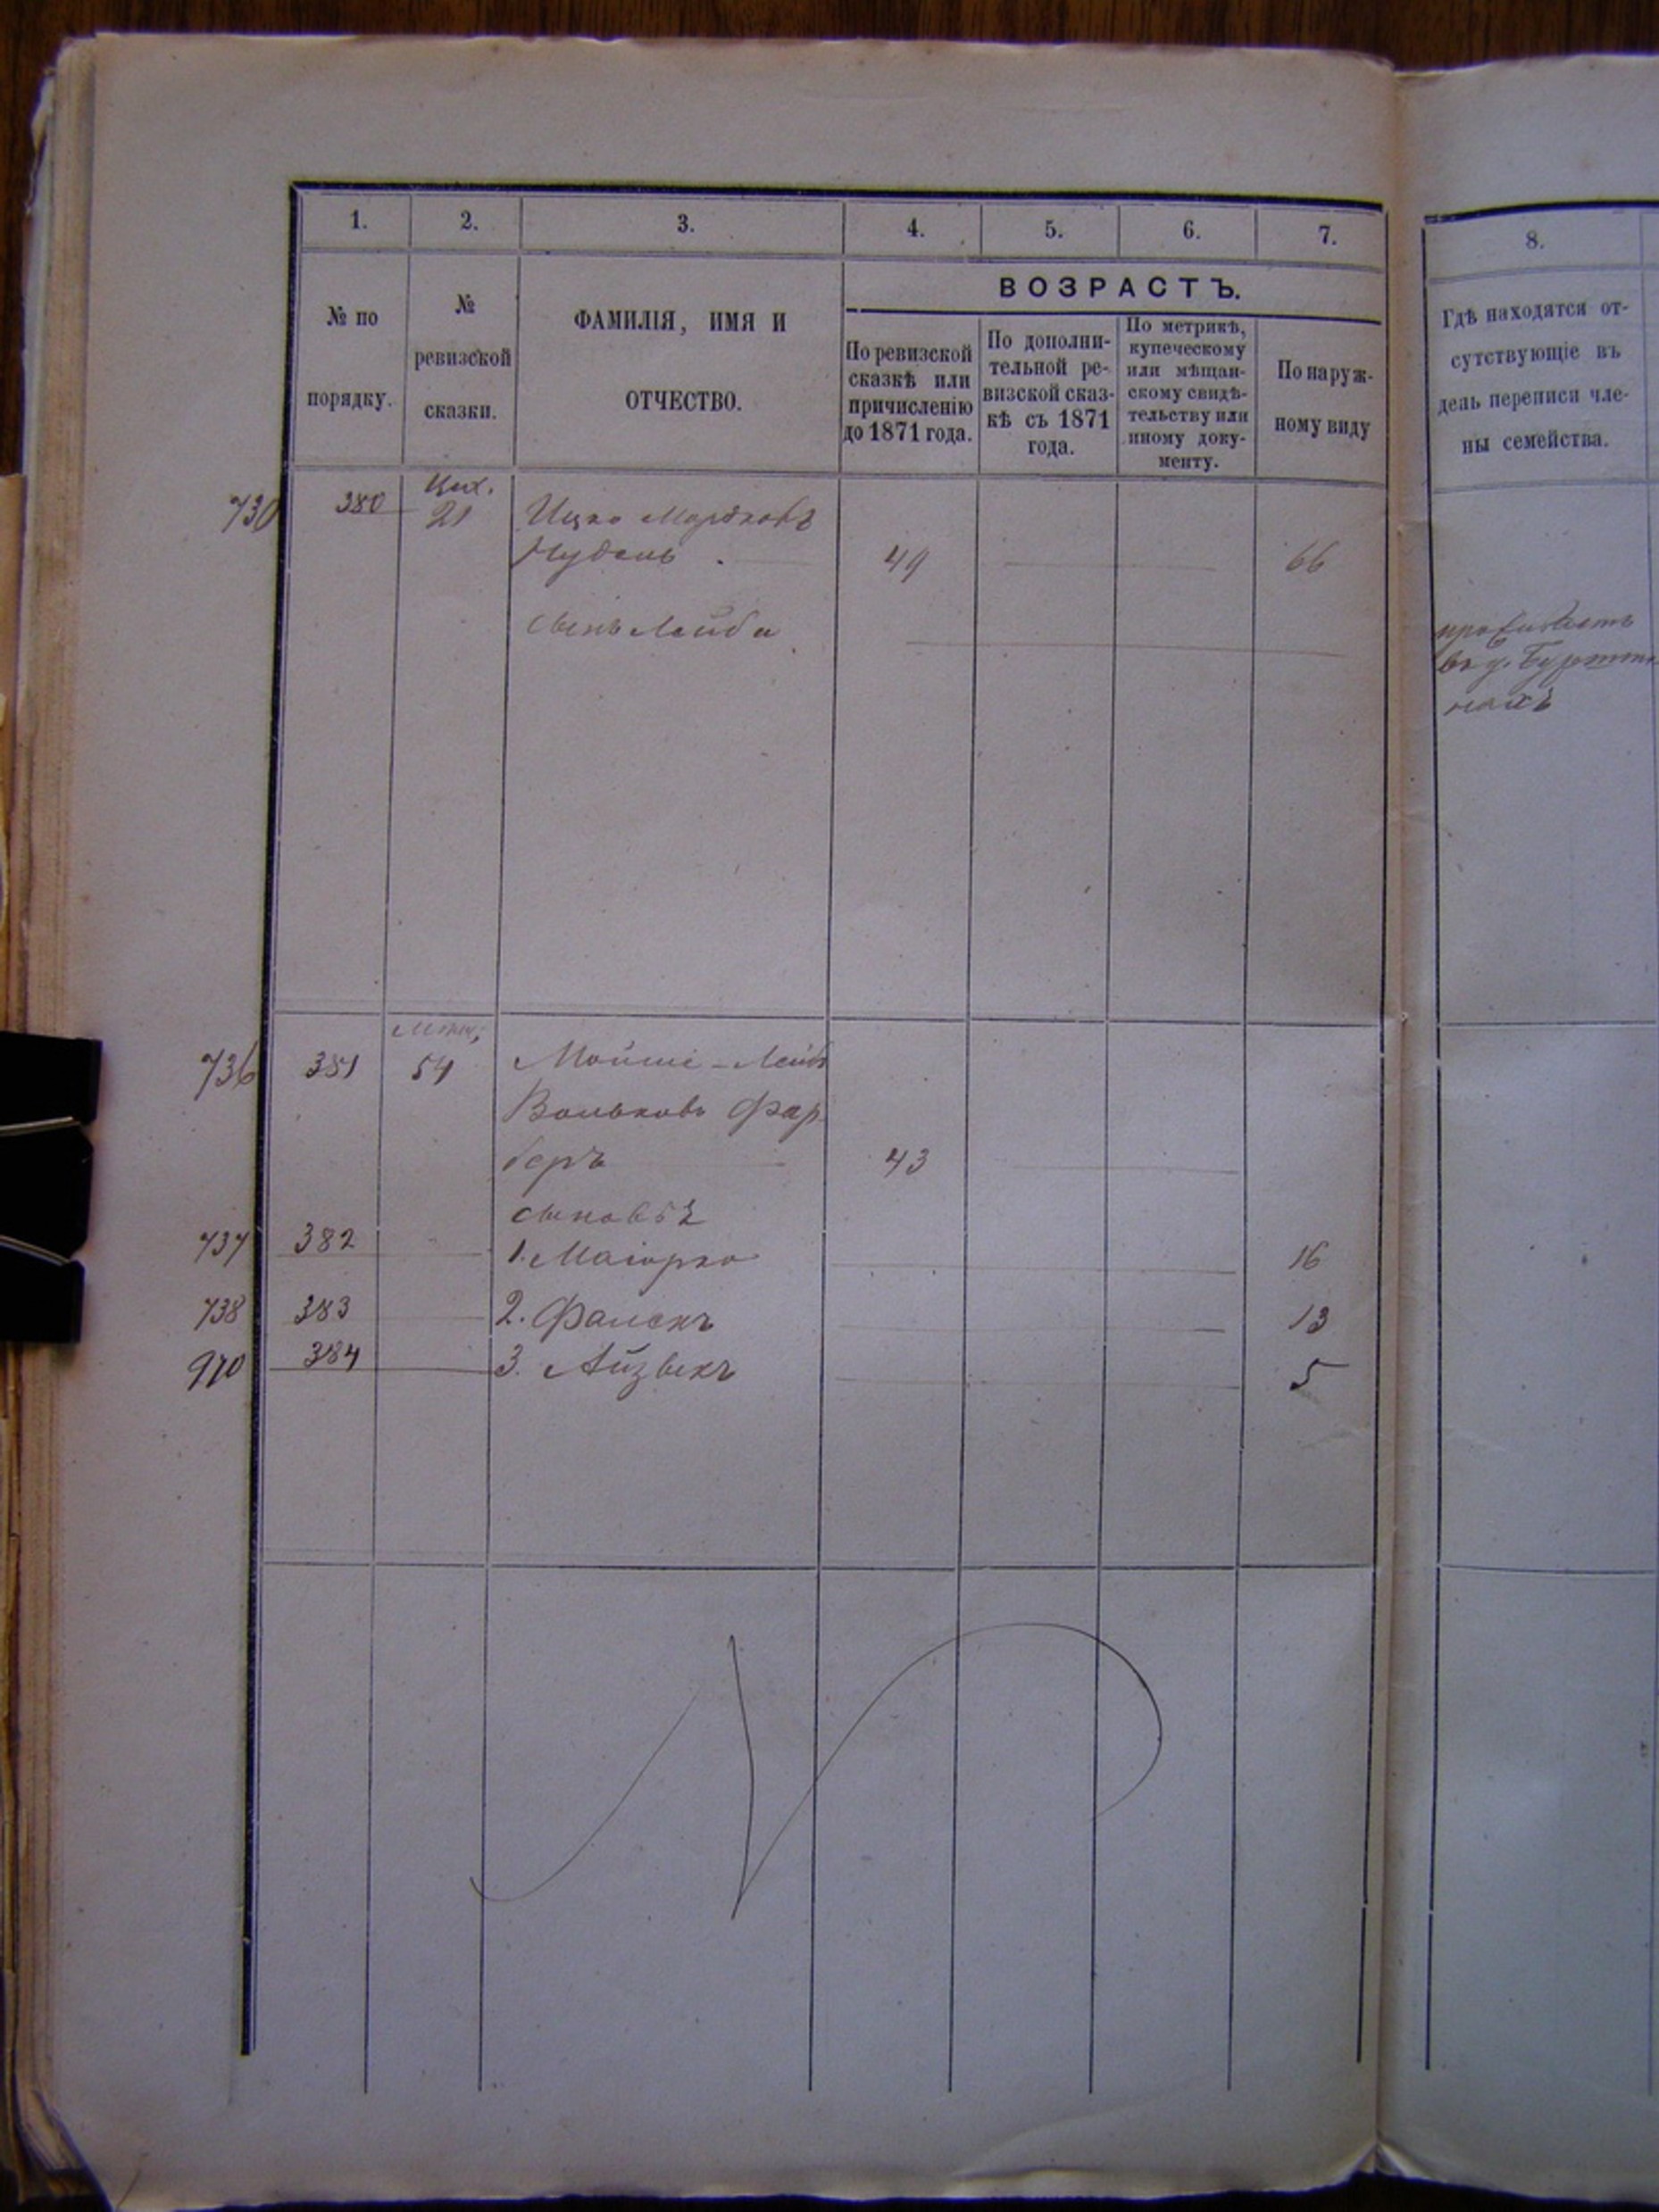 1. 2. 3. 4. 5. 6. 7. 8.
ВОЗРАСТЪ.
№ по
порядку.
№
ревизской
сказки.
ФАМИЛІЯ, ИМЯ И
ОТЧЕСТВО.
По ревизской
сказкѣ или
причисленію
до 1871 года.
По дополни-
тельной ре-
визской сказ-
кѣ съ 1871
года.
По метрикѣ,
купеческому
или мѣщан-
скому свидѣ-
тельству или
иному доку-
менту.
По наруж-
ному виду
Гдѣ находятся от-
сутствующіе въ
день переписи чле-
ны семейства.
730 380 21 Ицко Мордковъ
Нудель 49 66
сынъ Лейба
проживаетъ
въ
736 381 54 Мойше-Лейб
Вольковъ Фар
беръ 43
сыновья
737 382 1. Маіорко 16
738 383 2. Фалекъ 13
970 384 3. Айзыкъ 5